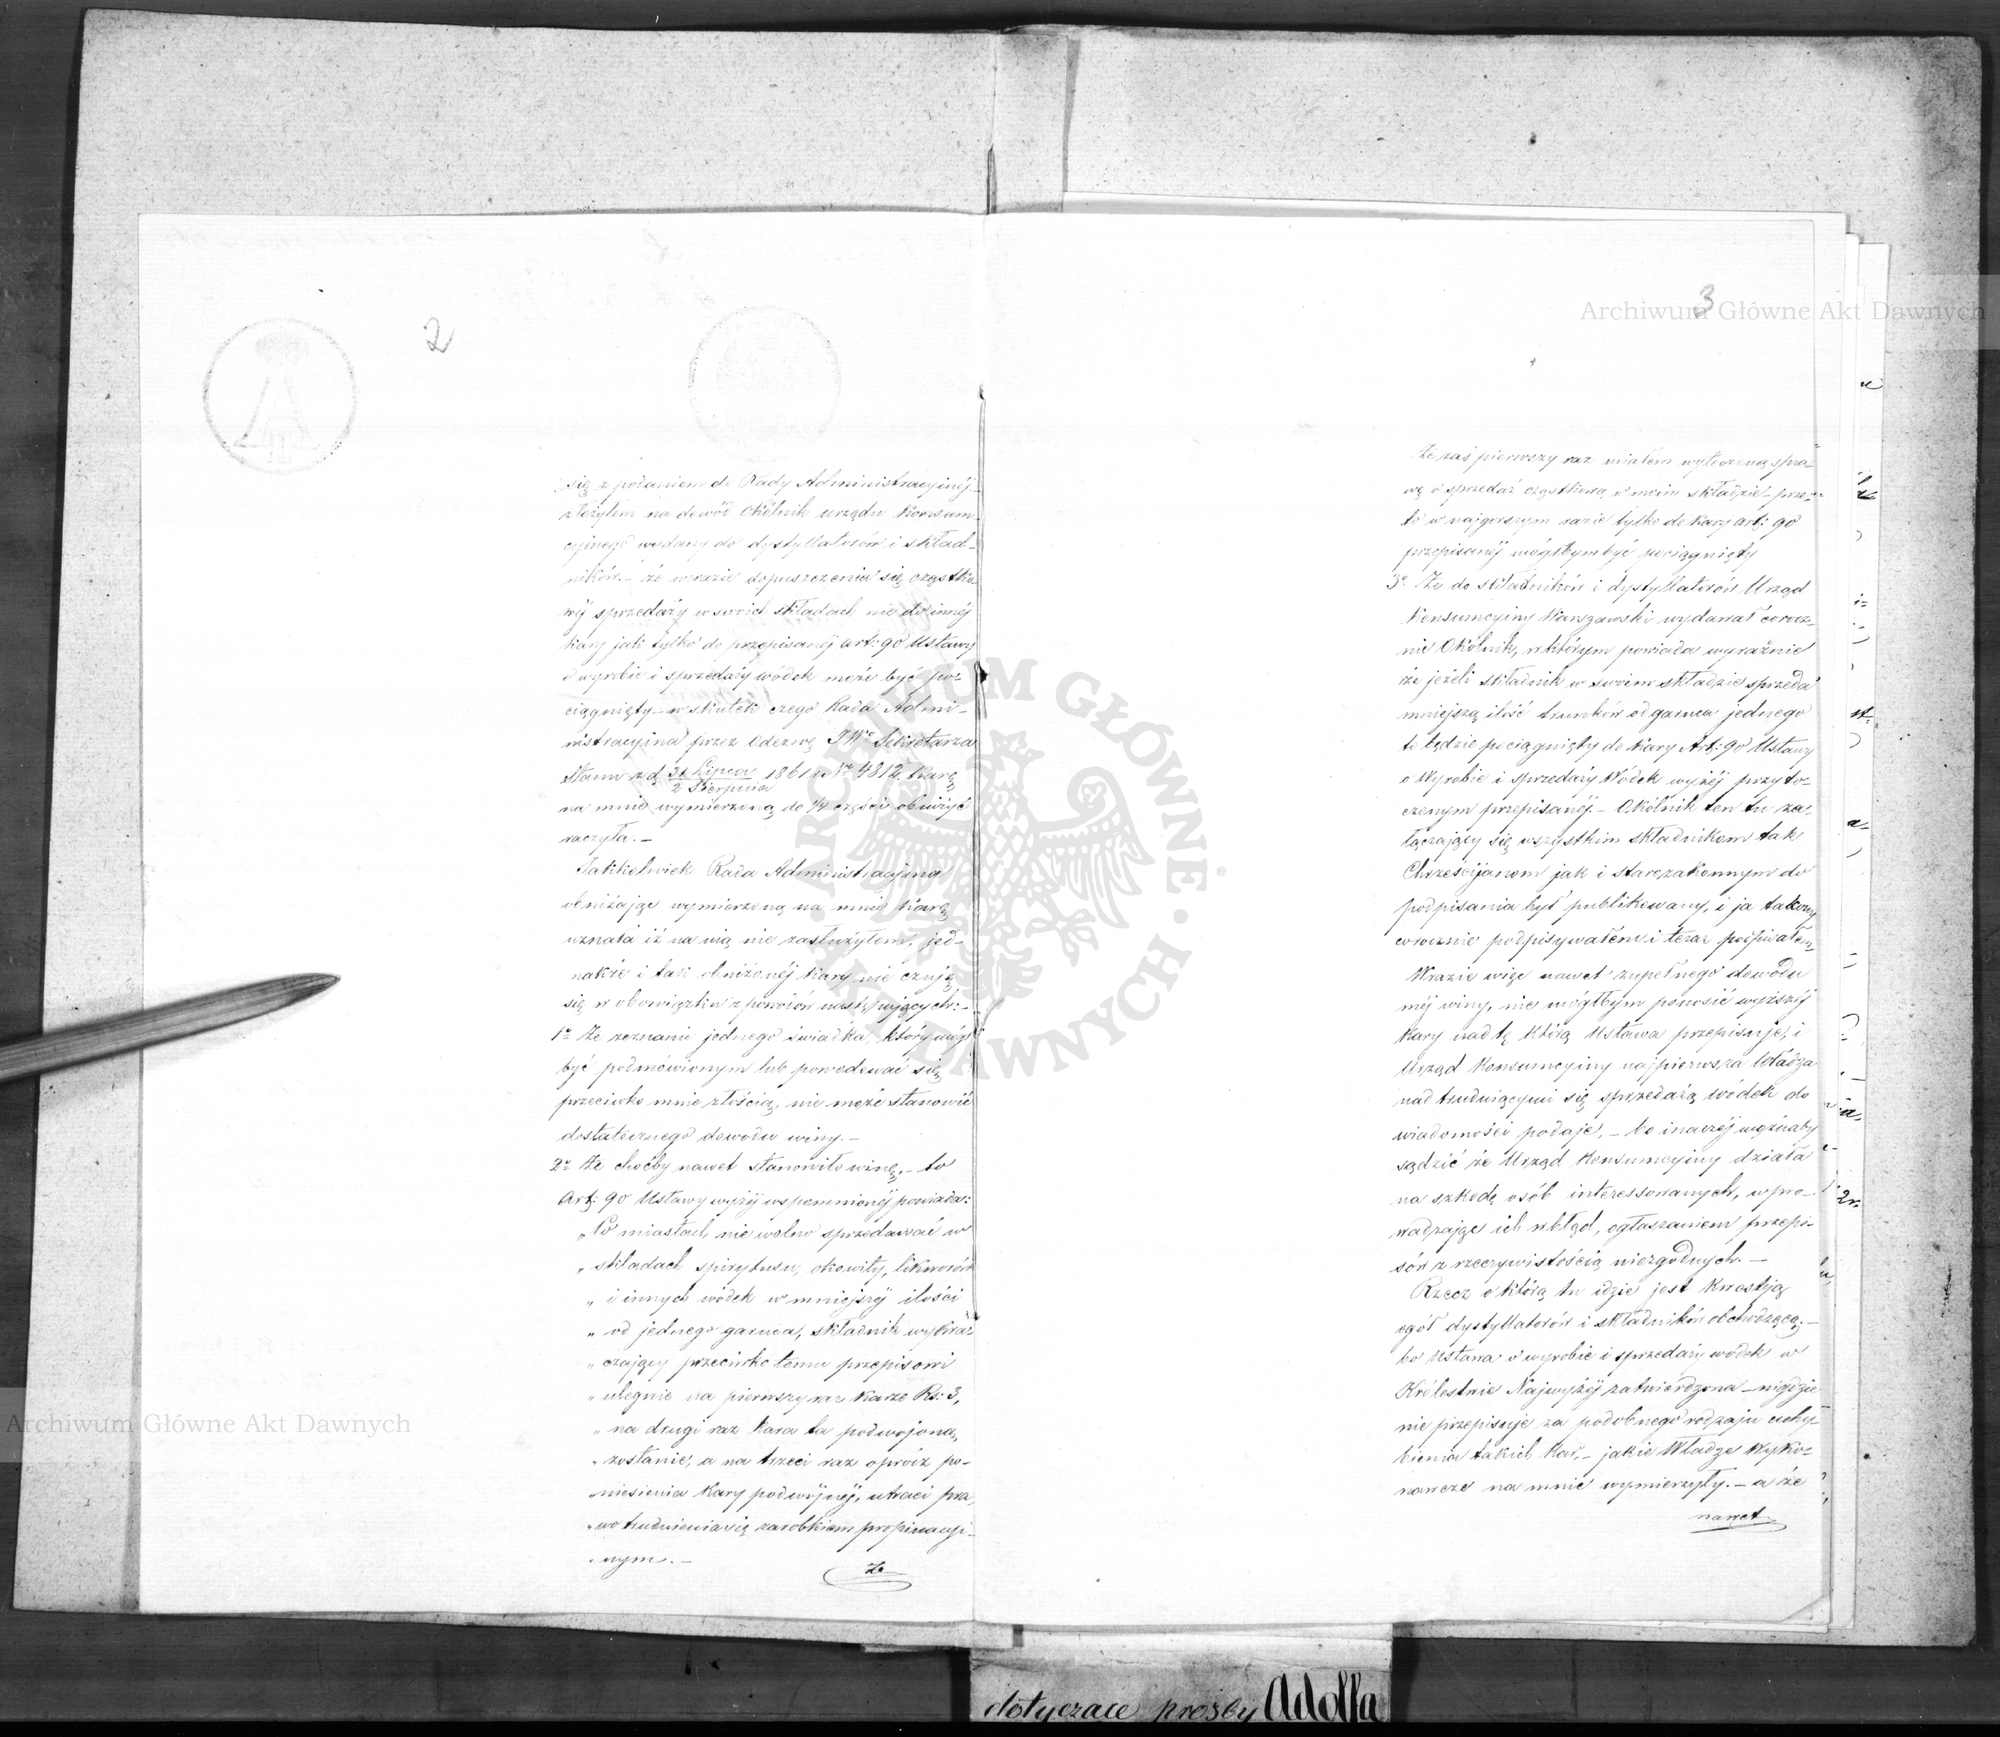 2
się z podaniem do Rady Administracyjnej
złożyłem na dowód Okólnik urzędu Konsum-
cyjnego wydany do dystyllatorów i skład-
ników. – że w razie dopuszczenia się cząstko-
wéj sprzedaży w swoich składach nie do innéj
kary jak tylko do przepisanéj art: 90 Ustawy
o wyrobie i sprzedaży wódek może być po-
ciągnięty – w skutek czego Rada Admi-
nistracyjna przez Odezwę JWo Sekretarza
Stanu z d. 31 Lipca / 2 Sierpnia 1861 r. No 4812, karę
na mnie wymierzoną do 1/4 części obniżyć
raczyła. –
Jakkolwiek Rada Administracyjna
obniżając wymierzoną na mnie karę
uznała iż na nią nie zasłużyłem, jed-
nakże i tak obniżonéj kary nie czuję
się w obowiązku z powodów następujących: –
1o Że zeznanie jednego świadka, który mógł
być podmówionym lub powodować się
przeciwko mnie złością, nie może stanowić
dostatecznego dowodu winy. –
2o Że choćby nawet stanowiło winę, – to
Art: 90 Ustawy wyżéj wspomnionéj powiada:
„W miastach nie wolno sprzedawać w
„ składach spirytusu, okowity, likworów
„ i innych wódek w mniejszéj ilości
„ od jednego garnca, składnik wykra-
„ czający przeciwko temu przepisowi
„ ulegnie na pierwszy raz karze Rs: 3,
„ na drugi raz kara ta podwojoną
„ zostanie, a na trzeci raz oprócz po-
„ niesienia kary podwójnéj, utraci pra-
„ wo trudnienia się zarobkiem propinacyj-
„ nym. –
Że
3
Że zaś pierwszy raz miałem wytoczoną spra-
wę o sprzedaż cząstkową w moim składzie – prze-
to w najgorszym razie tylko do kary art: 90
przepisanéj mógłbym być pociągnięty
3o Że do składników i dystyllatorów Urząd
Konsumcyjny Warszawski wydawał corocz-
nie Okólnik, w którym powiada wyraźnie
że jeżeli składnik w swoim składzie sprzeda
mniejszą ilość trunków od garnca jednego
to będzie pociągnięty do kary Art: 90 Ustawy
o Wyrobie i sprzedaży Wódek wyżéj przyto-
czonym przepisanéj. – Okólnik ten tu za-
łączający się wszystkim składnikom tak
Chrześcijanom jak i starozakonnym do
podpisania był publikowany, i ja takowy
corocznie podpisywałem i teraz podpisałem
W razie więc nawet zupełnego dowodu
méj winy, nie mógłbym ponosić wyższéj
kary nad tę którą Ustawa przepisuje, i
Urząd Konsumcyjny najpierwsza Władza
nad trudniącymi się sprzedażą wódek do
wiadomości podaje, – bo inaczéj możnaby
sądzić że Urząd Konsumcyjny działa
na szkodę osób interessowanych, wpro-
wadzając ich w błąd, ogłaszaniem przepi-
sów z rzeczywistością niezgodnych. –
Rzecz o którą tu idzie jest kwestją
ogół dystyllatorów i składników obchodzącą, –
bo Ustawa o wyrobie i sprzedaży wódek w
Królestwie Najwyżéj zatwierdzona – nigdzie
nie przepisuje za podobnego rodzaju uchy-
bienia takich kar, – jakie Władze Wyko-
nawcze na mnie wymierzyły. – a że
nawet
dotyczące prośby Adolfa
Archiwum Główne Akt Dawnych
ARCHIWUM GŁÓWNE · AKT DAWNYCH ·
Archiwum Główne Akt Dawnych